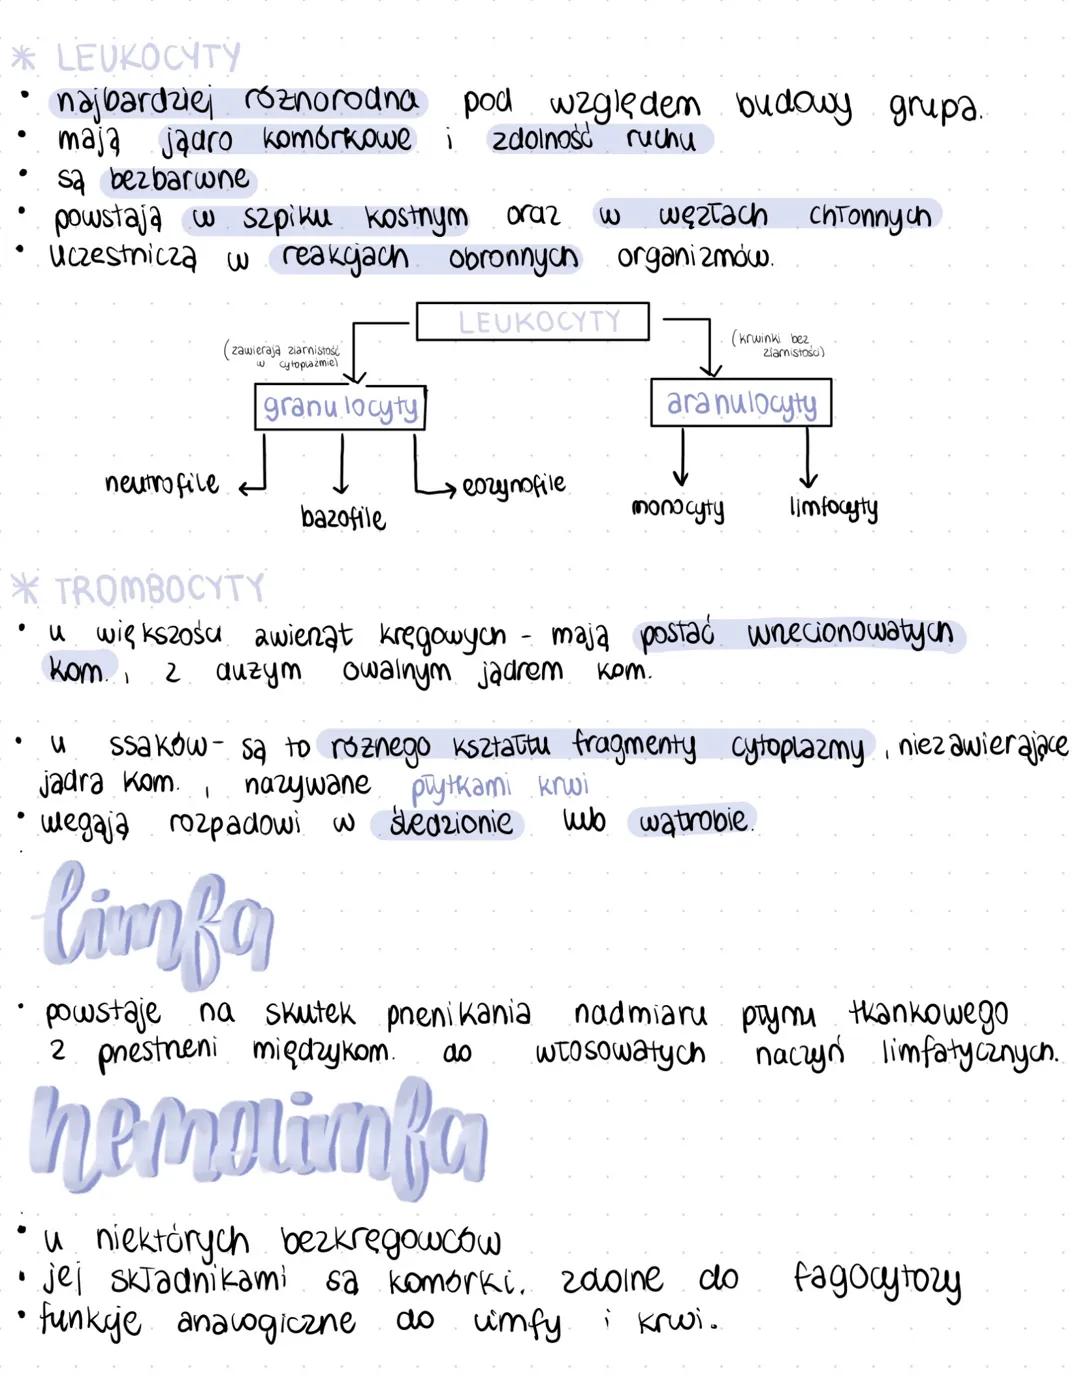 * LEUKOCYTY
• najbardziej różnorodna pod względem budowy grupa.
• mają jądro komórkowe i zdolność ruchu
• są bezbarwne
• powstają w szpiku kostnym oraz w węzłach chłonnych
• uczestniczą w reakcjach obronnych organizmów.
LEUKOCYTY
(zawierają ziarnistość
w cytoplazmie)
(krwinki bez
ziarnistości)
granulocyty
aranulocyty
neutrofile
bazofile
eozynofile
monocyty
limfocyty
* TROMBOCYTY
• u większości zwierząt kręgowych - mają postać wrzecionowatych
kom., z dużym owalnym jądrem kom.
• u ssaków - są to różnego kształtu fragmenty cytoplazmy, niezawierające
jądra kom., nazywane płytkami krwi
• ulegają rozpadowi w śledzionie lub wątrobie.
limfa
• powstaje na skutek przenikania nadmiaru płynu tkankowego
z przestrzeni międzykom. do włosowatych naczyń limfatycznych.
hemolimfa
• u niektórych bezkręgowców
• jej składnikami są komórki, zdolne do fagocytozy
• funkcje analogiczne do limfy i krwi.